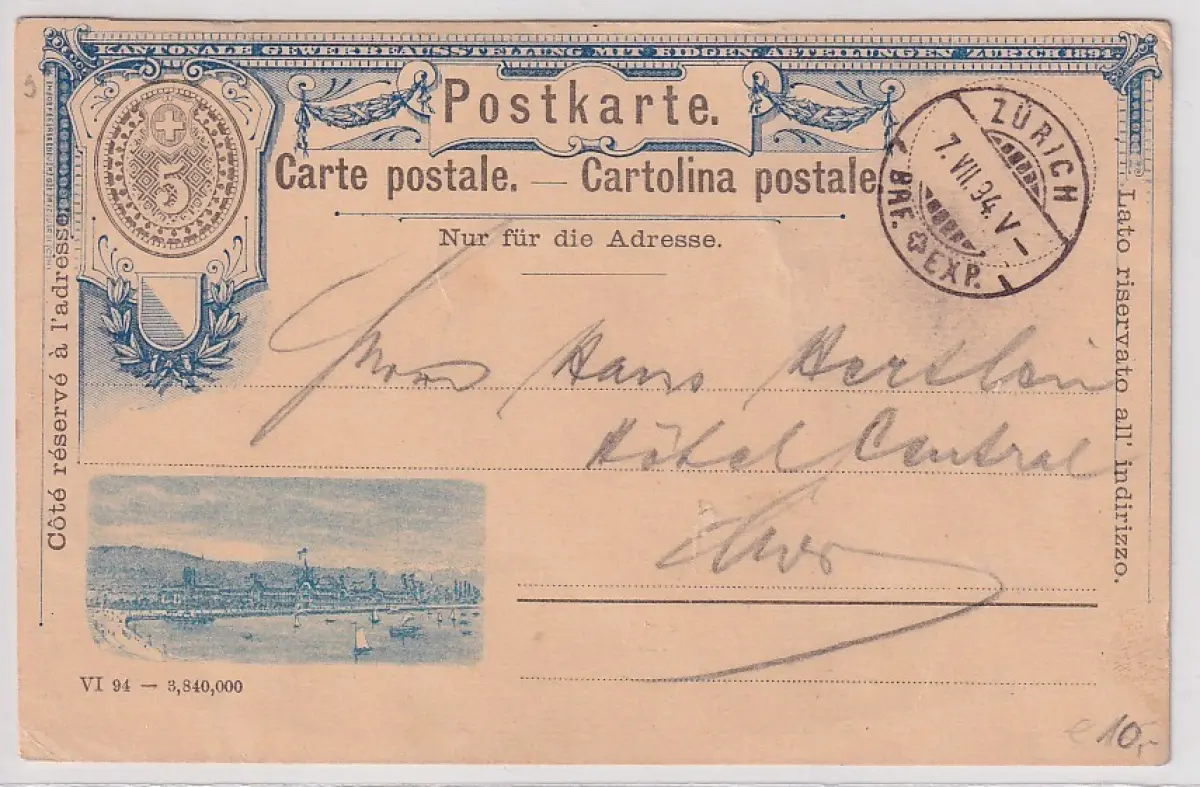 KANTONALE GEWERBEAUSSTELLUNG MIT EIDGEN. ABTEILUNGEN ZÜRICH 1894
5
Postkarte.
Carte postale. — Cartolina postale
Nur für die Adresse.
ZÜRICH
7.VII.94.V–
BRF. EXP.
Côté réservé à l'adresse.
Lato riservato all' indirizzo.
Herrn Hans
Hôtel Central
Chur
VI 94 — 3,840,000
€ 10,-